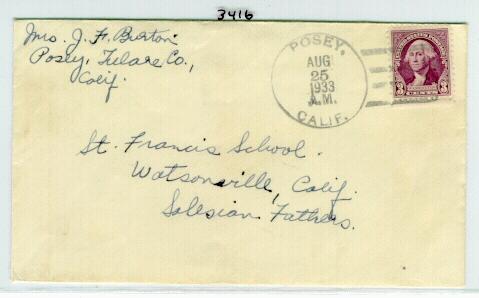 3416
Mrs. J. F. Burton
Posey, Tulare Co.,
Calif.
POSEY,
AUG
25
1933
A.M.
CALIF.
UNITED STATES POSTAGE
3 3
St. Francis School.
Watsonville, Calif.
Salesian Fathers.